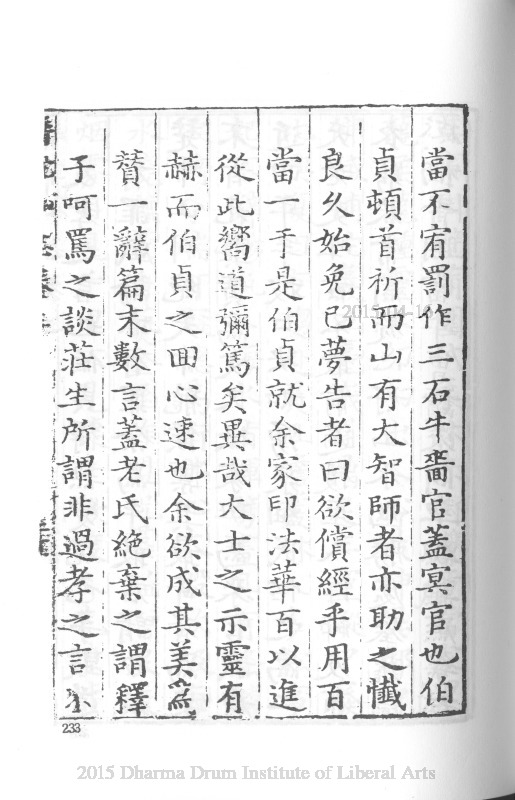 當不宥罰作三石牛嗇官蓋冥官也伯
貞頓首祈而山有大智師者亦助之懺
良久始免已夢告者曰欲償經乎用百
當一于是伯貞就余家印法華百以進
從此嚮道彌篤矣異哉大士之示靈有
赫而伯貞之回心速也余欲成其美爲
贊一辭篇末數言蓋老氏絶棄之謂釋
子呵罵之談莊生所謂非過孝之言
233
2015 Dharma Drum Institute of Liberal Arts